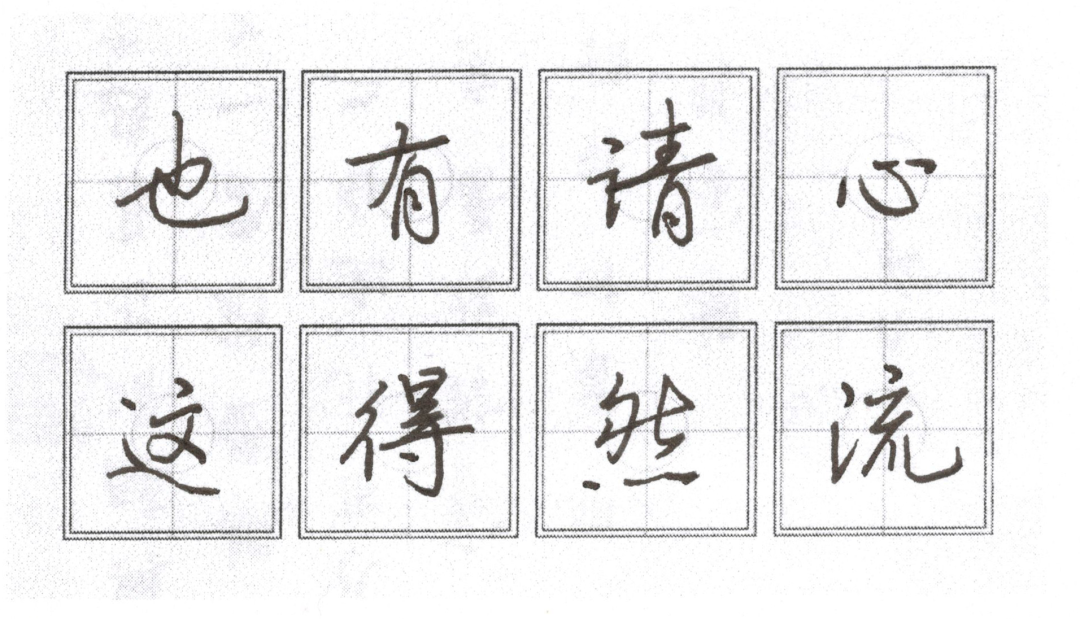 也有请心
这得然流